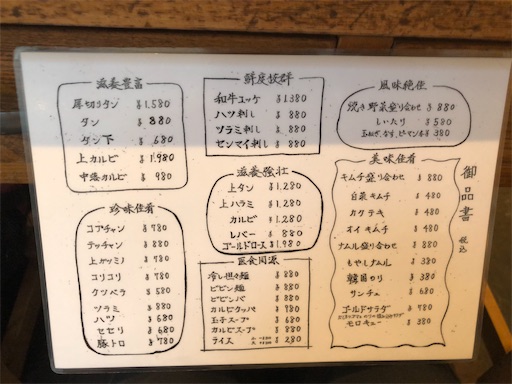 滋養豊富
厚切りタン ¥1,580
タン ¥880
タン下 ¥680
上カルビ ¥1,980
中落カルビ ¥980
鮮度抜群
和牛ユッケ ¥1380
ハツ刺し ¥880
ツラミ刺し ¥880
センマイ刺し ¥880
風味絶佳
焼き野菜盛り合わせ ¥880
しいたけ ¥580
玉ねぎ、なす、ピーマン各 ¥380
珍味佳肴
コプチャン ¥780
テッチャン ¥880
上ガツミノ ¥780
コリコリ ¥780
クツベラ ¥580
ツラミ ¥880
ハツ ¥680
セセリ ¥680
豚トロ ¥780
滋養強壮
上タン ¥1,280
上ハラミ ¥1,280
カルビ ¥1,280
レバー ¥880
ゴールドロース ¥1,980
医食同源
冷し担々麺 ¥880
ビビン麺 ¥880
ビビンバ ¥880
カルビクッパ ¥780
玉子スープ ¥680
カルビスープ ¥880
ライス ¥280
美味佳肴
キムチ盛り合わせ ¥880
白菜キムチ ¥480
カクテキ ¥480
オイキムチ ¥480
ナムル盛り合わせ ¥880
もやしナムル ¥380
韓国のり ¥380
サンチュ ¥680
ゴールドサラダ ¥780
モロキュー ¥380
御品書 税込